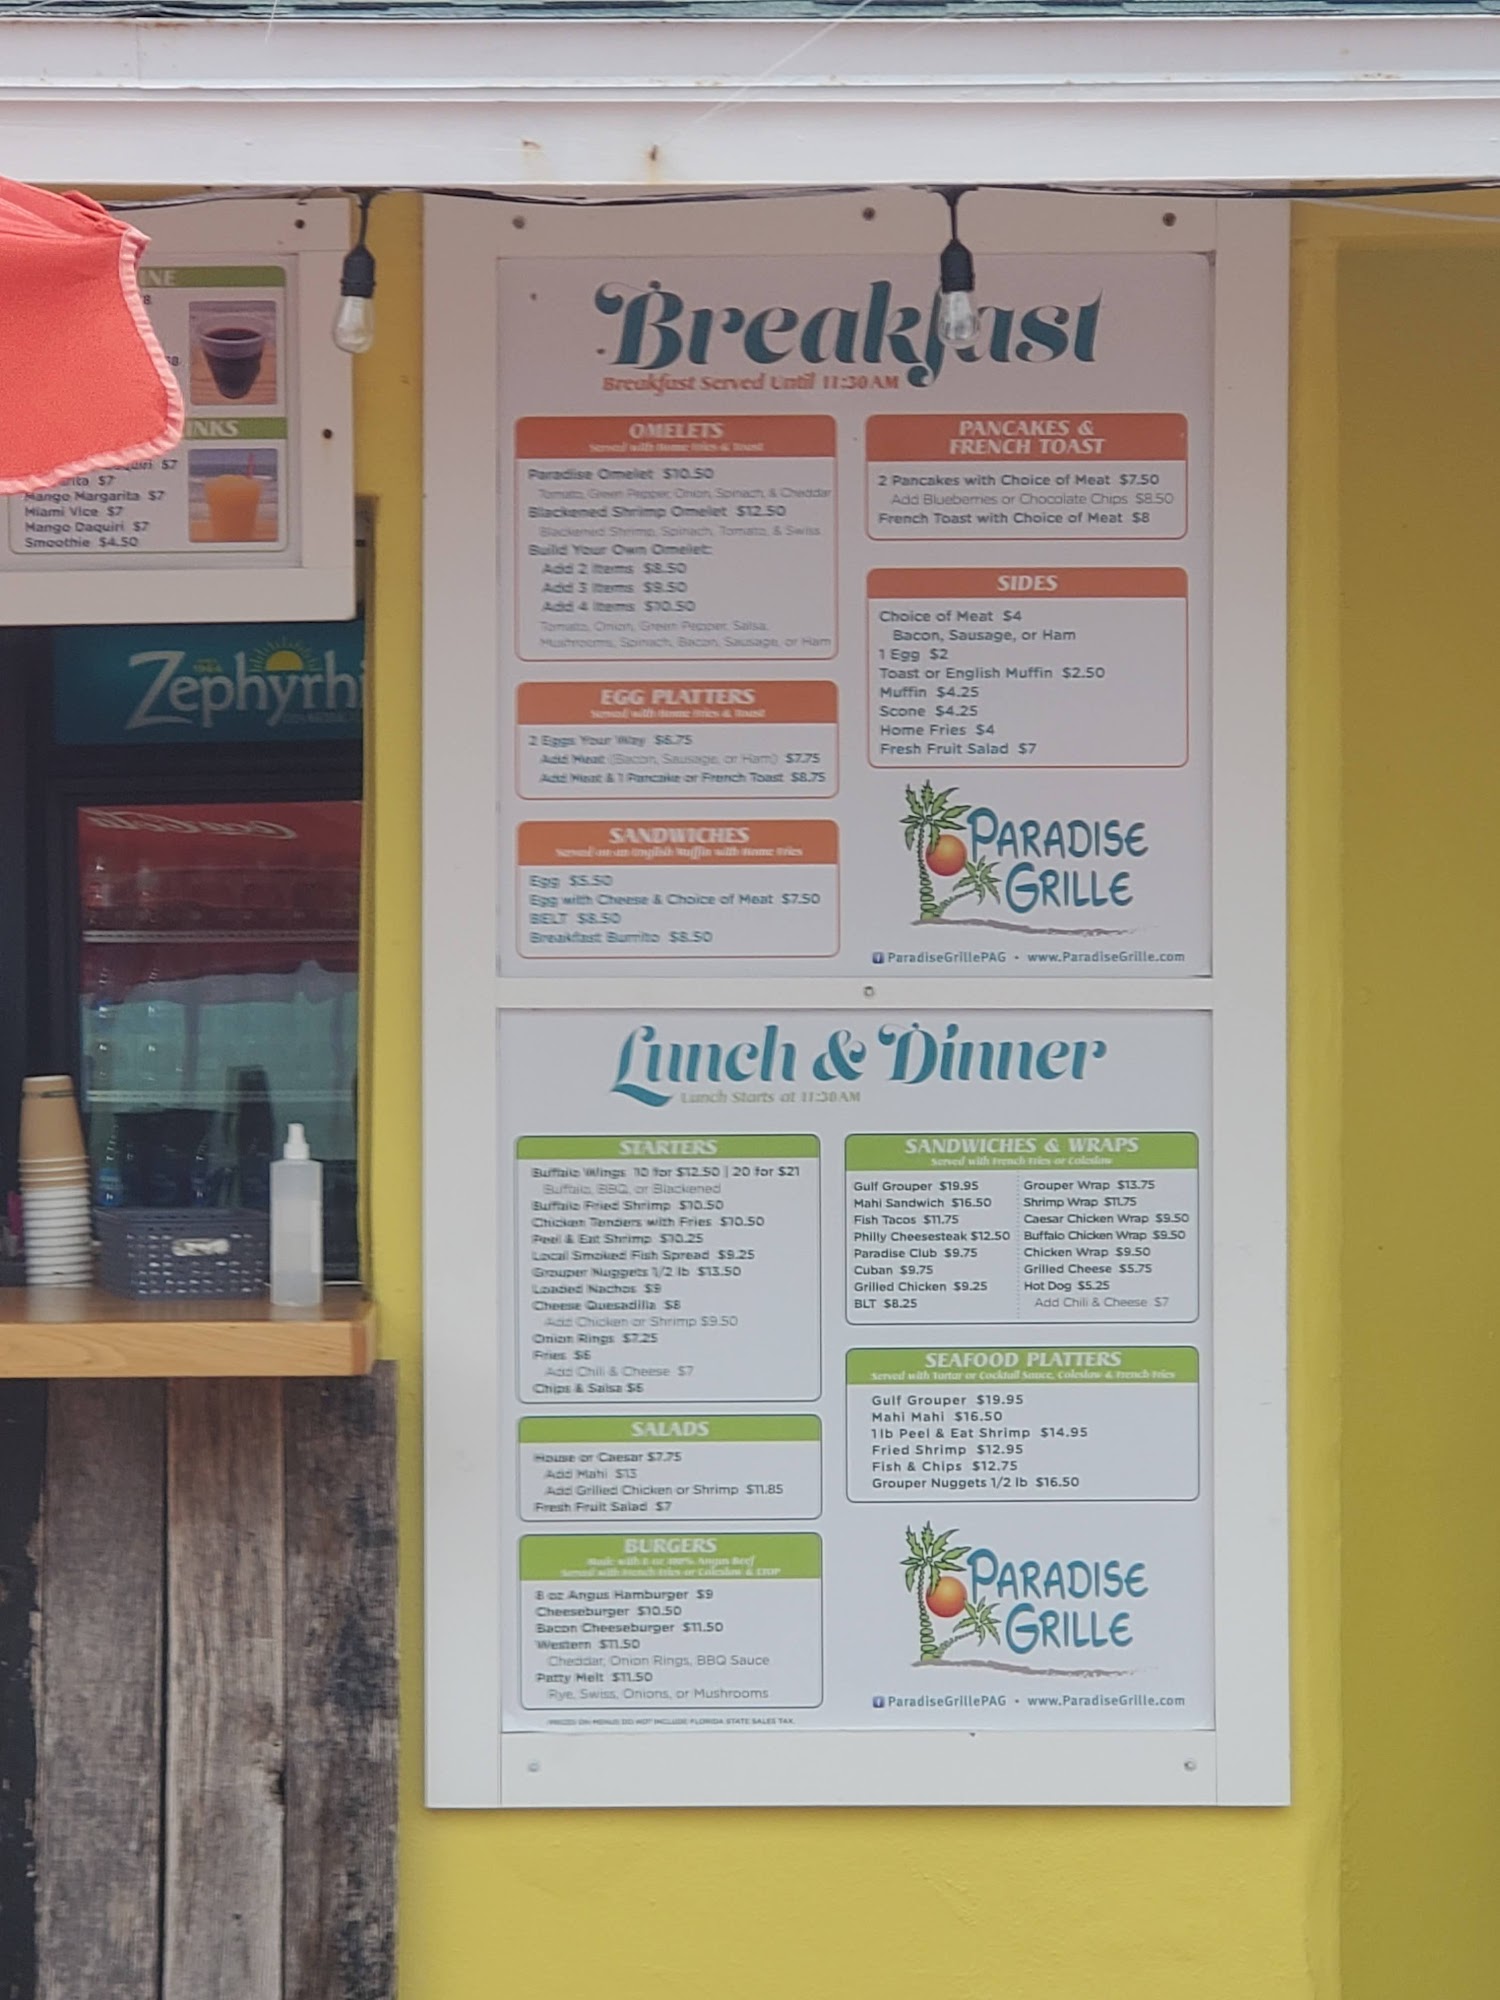 INE
8
$8
INKS
aquiri $7
rita $7
Mango Margarita $7
Miami Vice $7
Mango Daquiri $7
Smoothie $4.50
Zephyrhi
Coca-Cola
Breakfast
Breakfast Served Until 11:30AM
OMELETS
Served with Home Fries & Toast
Paradise Omelet $10.50
Tomato, Green Pepper, Onion, Spinach, & Cheddar
Blackened Shrimp Omelet $12.50
Blackened Shrimp, Spinach, Tomato, & Swiss
Build Your Own Omelet:
Add 2 Items $8.50
Add 3 Items $9.50
Add 4 Items $10.50
Tomato, Onion, Green Pepper, Salsa,
Mushrooms, Spinach, Bacon, Sausage, or Ham
EGG PLATTERS
Served with Home Fries & Toast
2 Eggs Your Way $6.75
Add Meat (Bacon, Sausage, or Ham) $7.75
Add Meat & 1 Pancake or French Toast $8.75
SANDWICHES
Served on an English Muffin with Home Fries
Egg $5.50
Egg with Cheese & Choice of Meat $7.50
BELT $8.50
Breakfast Burrito $8.50
PANCAKES &
FRENCH TOAST
2 Pancakes with Choice of Meat $7.50
Add Blueberries or Chocolate Chips $8.50
French Toast with Choice of Meat $8
SIDES
Choice of Meat $4
Bacon, Sausage, or Ham
1 Egg $2
Toast or English Muffin $2.50
Muffin $4.25
Scone $4.25
Home Fries $4
Fresh Fruit Salad $7
PARADISE
GRILLE
ParadiseGrillePAG • www.ParadiseGrille.com
Lunch & Dinner
Lunch Starts at 11:30AM
STARTERS
Buffalo Wings 10 for $12.50 | 20 for $21
Buffalo, BBQ, or Blackened
Buffalo Fried Shrimp $10.50
Chicken Tenders with Fries $10.50
Peel & Eat Shrimp $10.25
Local Smoked Fish Spread $9.25
Grouper Nuggets 1/2 lb $13.50
Loaded Nachos $9
Cheese Quesadilla $8
Add Chicken or Shrimp $9.50
Onion Rings $7.25
Fries $6
Add Chili & Cheese $7
Chips & Salsa $6
SALADS
House or Caesar $7.75
Add Mahi $13
Add Grilled Chicken or Shrimp $11.85
Fresh Fruit Salad $7
BURGERS
Made with 8 oz 100% Angus Beef
Served with French Fries or Coleslaw & LTOP
8 oz Angus Hamburger $9
Cheeseburger $10.50
Bacon Cheeseburger $11.50
Western $11.50
Cheddar, Onion Rings, BBQ Sauce
Patty Melt $11.50
Rye, Swiss, Onions, or Mushrooms
PRICES ON MENUS DO NOT INCLUDE FLORIDA STATE SALES TAX.
SANDWICHES & WRAPS
Served with French Fries or Coleslaw
Gulf Grouper $19.95
Mahi Sandwich $16.50
Fish Tacos $11.75
Philly Cheesesteak $12.50
Paradise Club $9.75
Cuban $9.75
Grilled Chicken $9.25
BLT $8.25
Grouper Wrap $13.75
Shrimp Wrap $11.75
Caesar Chicken Wrap $9.50
Buffalo Chicken Wrap $9.50
Chicken Wrap $9.50
Grilled Cheese $5.75
Hot Dog $5.25
Add Chili & Cheese $7
SEAFOOD PLATTERS
Served with Tartar or Cocktail Sauce, Coleslaw & French Fries
Gulf Grouper $19.95
Mahi Mahi $16.50
1 lb Peel & Eat Shrimp $14.95
Fried Shrimp $12.95
Fish & Chips $12.75
Grouper Nuggets 1/2 lb $16.50
PARADISE
GRILLE
ParadiseGrillePAG • www.ParadiseGrille.com